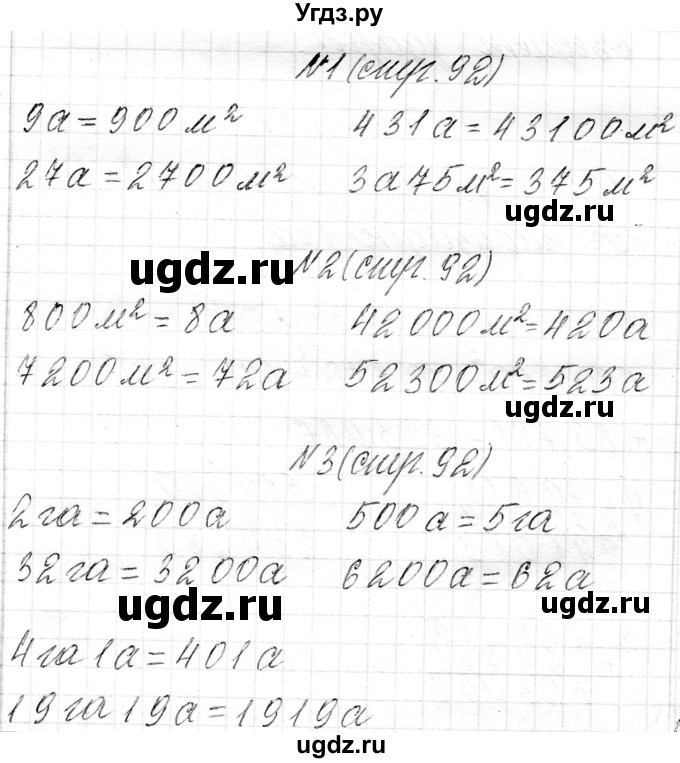 Угдз.ру
№1 (стр. 92)
9а = 900 м² 431а = 43100 м²
27а = 2700 м² 3а 75 м² = 375 м²
ugdz.ru
ugdz.ru
№2 (стр. 92)
800 м² = 8а 42000 м² = 420а
7200 м² = 72а 52300 м² = 523а
ugdz.ru
№3 (стр. 92)
2га = 200а 500а = 5га
32га = 3200а 6200а = 62а
ugdz.ru
ugdz.ru
4га 1а = 401а
19га 19а = 1919а
ugdz.ru